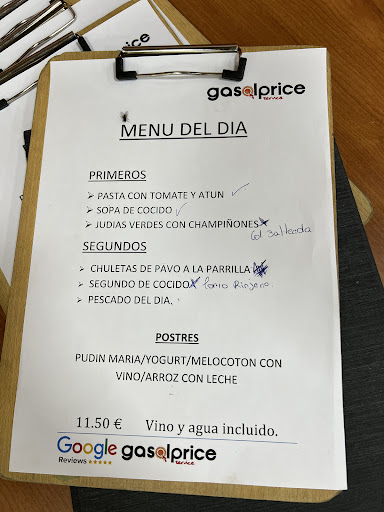 gasolprice
service
MENU DEL DIA
PRIMEROS
➢ PASTA CON TOMATE Y ATUN
➢ SOPA DE COCIDO
➢ JUDIAS VERDES CON CHAMPIÑONES
Col Salteada
SEGUNDOS
➢ CHULETAS DE PAVO A LA PARRILLA
➢ SEGUNDO DE COCIDO Lomo
➢ PESCADO DEL DIA.
POSTRES
PUDIN MARIA/YOGURT/MELOCOTON CON
VINO/ARROZ CON LECHE
11.50 € Vino y agua incluido.
Google gasolprice
Reviews ★★★★★ service